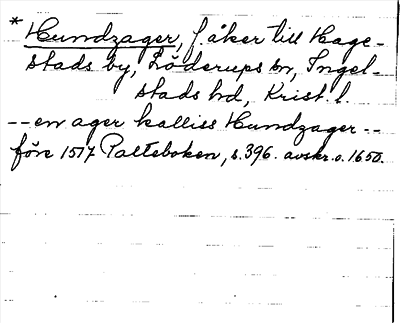 * Hundzager, f. åker till Hage-
stads by, Löderups sn, Ingel-
stads hd, Krist. l.
-- en ager kalliss Hundzager --
före 1517 Palteboken, s. 396. avskr. o. 1650.